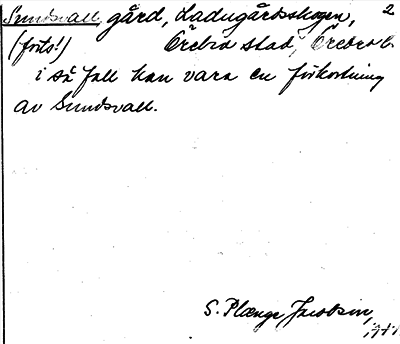 Sundsvall, gård, Ladugårdsskogen, 2
(forts!) Örebro stad, Örebro l.
i så fall kan vara en förkortning
av Sundsvall.
S. Plænge Jacobson,